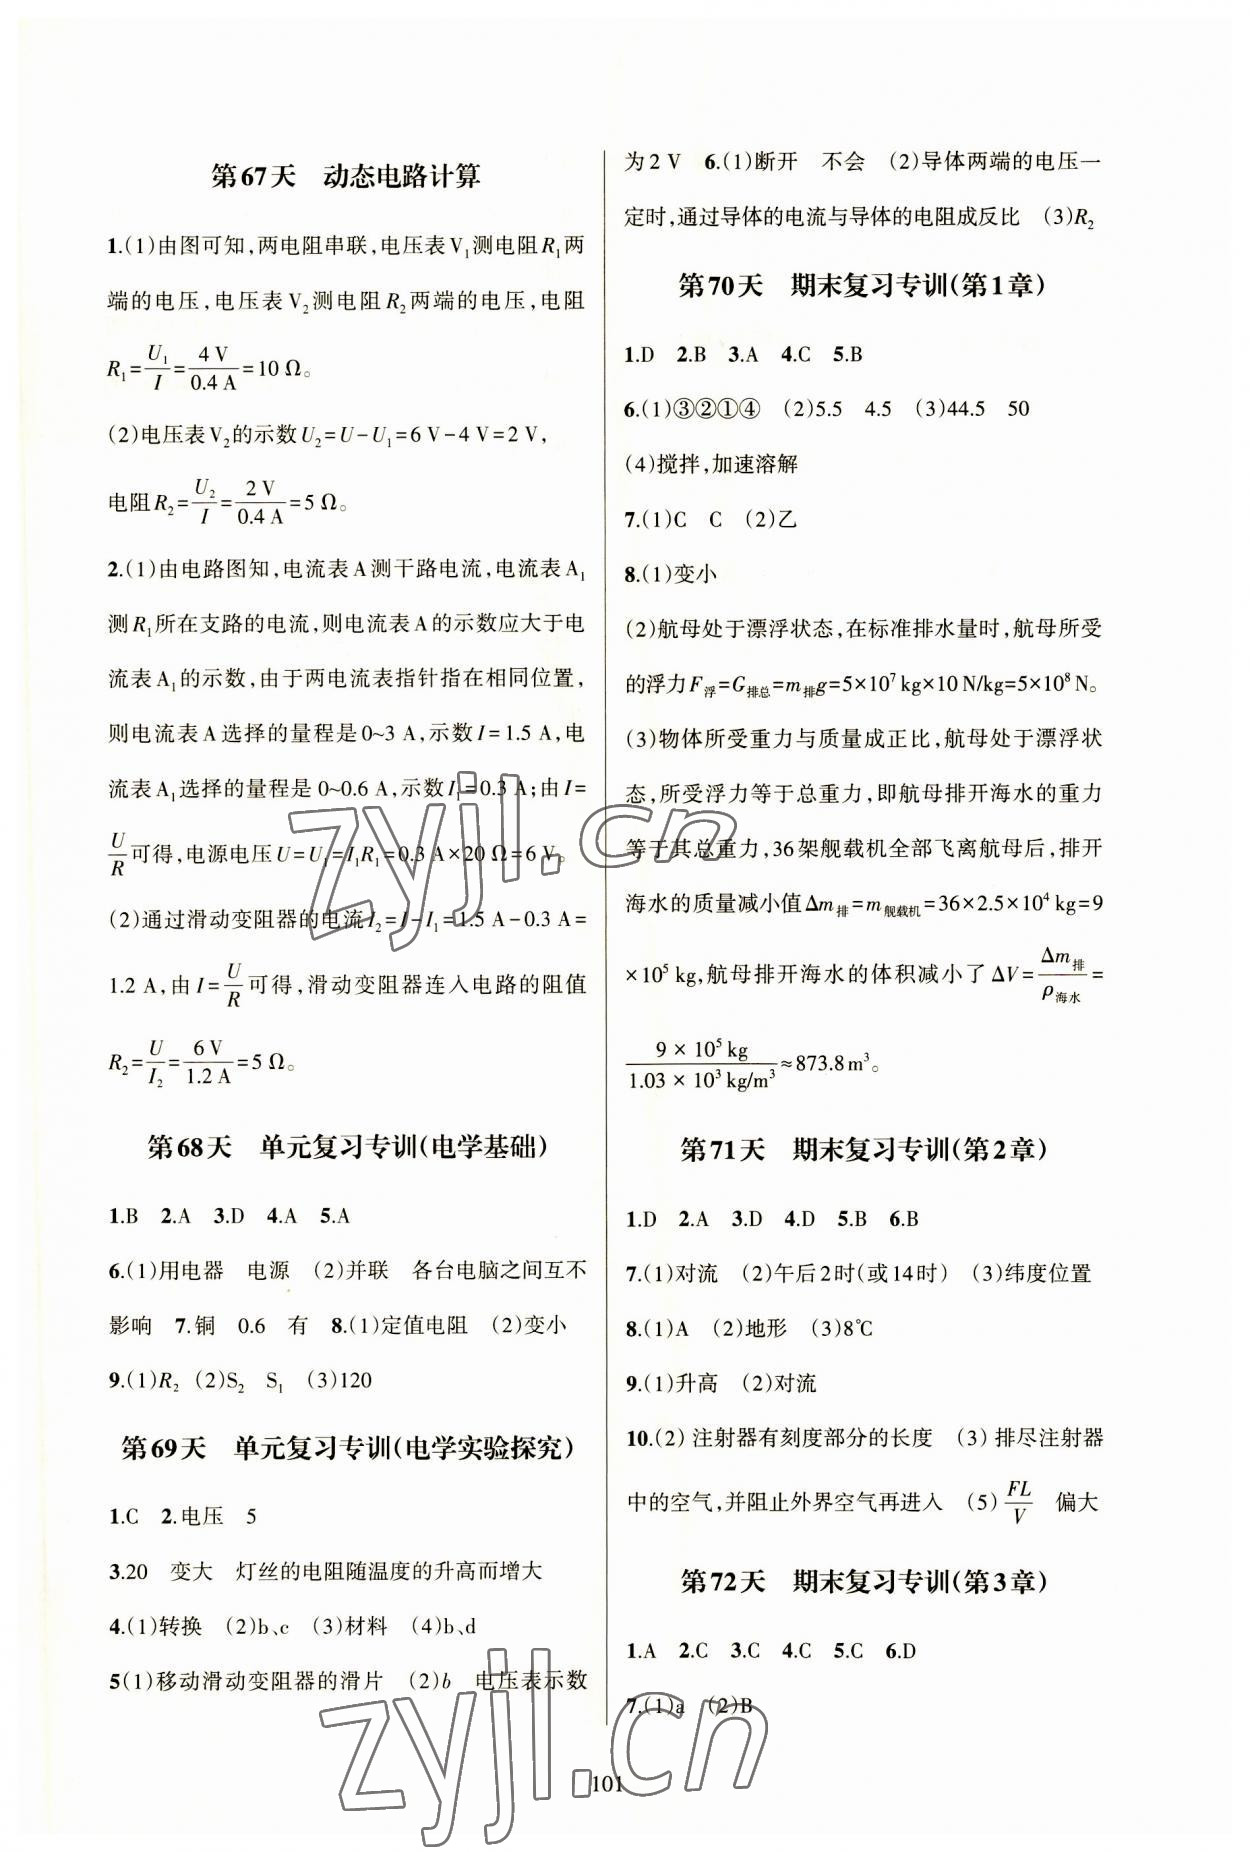 第67天　动态电路计算
1.(1)由图可知,两电阻串联,电压表V₁测电阻R₁两
端的电压,电压表V₂测电阻R₂两端的电压,电阻
R₁=U₁/I=4 V/0.4 A=10 Ω。
(2)电压表V₂的示数U₂=U-U₁=6 V-4 V=2 V,
电阻R₂=U₂/I=2 V/0.4 A=5 Ω。
2.(1)由电路图知,电流表A测干路电流,电流表A₁
测R₁所在支路的电流,则电流表A的示数应大于电
流表A₁的示数,由于两电流表指针指在相同位置,
则电流表A选择的量程是0~3 A,示数I=1.5 A,电
流表A₁选择的量程是0~0.6 A,示数I₁=0.3 A;由I=
U/R可得,电源电压U=U₁=I₁R₁=0.3 A×20 Ω=6 V。
(2)通过滑动变阻器的电流I₂=I-I₁=1.5 A-0.3 A=
1.2 A,由I=U/R可得,滑动变阻器连入电路的阻值
R₂=U/I₂=6 V/1.2 A=5 Ω。
第68天　单元复习专训(电学基础)
1.B　2.A　3.D　4.A　5.A
6.(1)用电器　电源　(2)并联　各台电脑之间互不
影响　7.铜　0.6　有　8.(1)定值电阻　(2)变小
9.(1)R₂　(2)S₂　S₁　(3)120
第69天　单元复习专训(电学实验探究)
1.C　2.电压　5
3.20　变大　灯丝的电阻随温度的升高而增大
4.(1)转换　(2)b、c　(3)材料　(4)b、d
5(1)移动滑动变阻器的滑片　(2)b　电压表示数
为2 V　6.(1)断开　不会　(2)导体两端的电压一
定时,通过导体的电流与导体的电阻成反比　(3)R₂
第70天　期末复习专训(第1章)
1.D　2.B　3.A　4.C　5.B
6.(1)③②①④　(2)5.5　4.5　(3)44.5　50
(4)搅拌,加速溶解
7.(1)C　C　(2)乙
8.(1)变小
(2)航母处于漂浮状态,在标准排水量时,航母所受
的浮力F浮=G排总=m排g=5×10⁷ kg×10 N/kg=5×10⁸ N。
(3)物体所受重力与质量成正比,航母处于漂浮状
态,所受浮力等于总重力,即航母排开海水的重力
等于其总重力,36架舰载机全部飞离航母后,排开
海水的质量减小值Δm排=m舰载机=36×2.5×10⁴ kg=9
×10⁵ kg,航母排开海水的体积减小了ΔV=Δm排/ρ海水=
9×10⁵ kg/1.03×10³ kg/m³≈873.8 m³。
第71天　期末复习专训(第2章)
1.D　2.A　3.D　4.D　5.B　6.B
7.(1)对流　(2)午后2时(或14时)　(3)纬度位置
8.(1)A　(2)地形　(3)8℃
9.(1)升高　(2)对流
10.(2)注射器有刻度部分的长度　(3)排尽注射器
中的空气,并阻止外界空气再进入　(5)FL/V　偏大
第72天　期末复习专训(第3章)
1.A　2.C　3.C　4.C　5.C　6.D
7.(1)a　(2)B
101
zyjl.cn
zyjl.cn